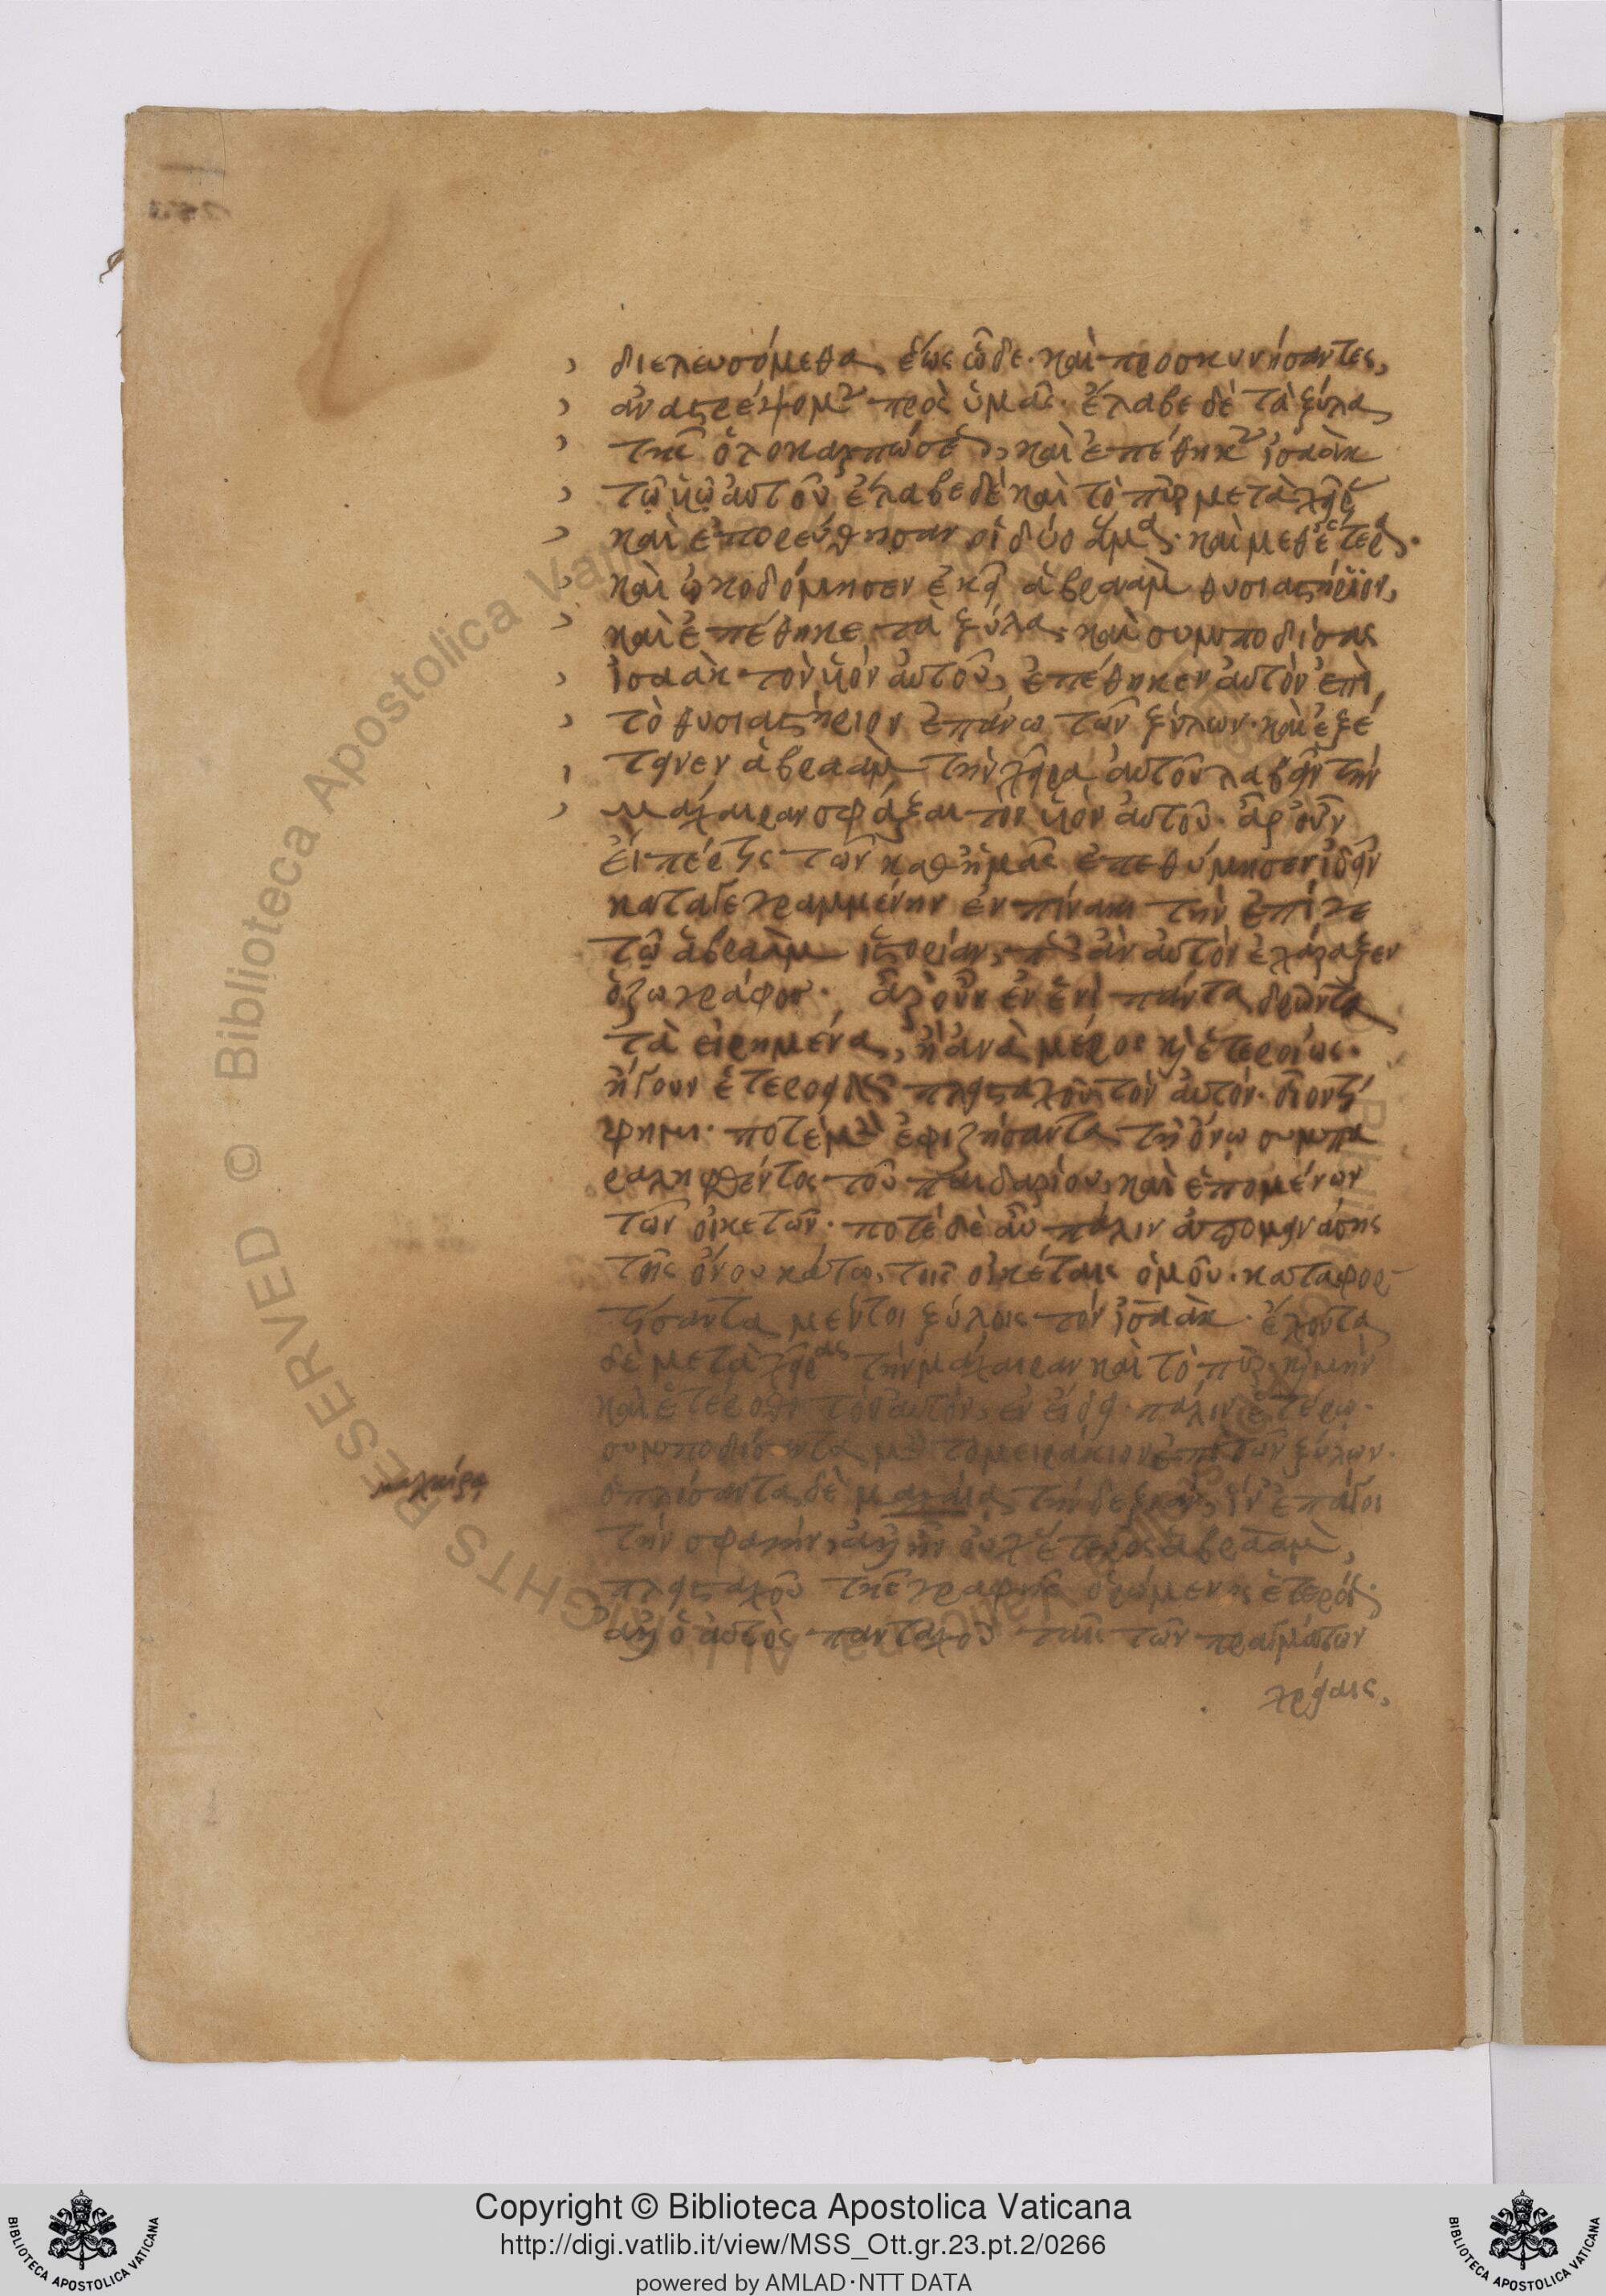 διελευσόμεθα, ἕως ὧδε· καὶ προσκυνήσαντες,
ἀναστρέψομεν πρὸς ὑμᾶς. ἔλαβε δὲ τὰ ξύλα
τῆς ὁλοκαρπώσεως, καὶ ἐπέθηκεν ἰσαὰκ
τῷ υἱῷ αὐτοῦ ἔλαβε δὲ καὶ τὸ πῦρ μετὰ χεῖρας
καὶ ἐπορεύθησαν οἱ δύο ἅμα· καὶ μεθ' ἕτερα·
καὶ ὠκοδόμησεν ἐκεῖ ἀβραὰμ θυσιαστήριον,
καὶ ἐπέθηκε τὰ ξύλα, καὶ συμποδίσας
ἰσαὰκ τὸν υἱὸν αὐτοῦ, ἐπέθηκεν αὐτὸν ἐπὶ
τὸ θυσιαστήριον ἐπάνω τῶν ξύλων· καὶ ἐξέ
τεινεν ἀβραὰμ τὴν χεῖρα αὐτοῦ λαβεῖν τὴν
μάχαιραν σφάξαι τὸν υἱὸν αὐτοῦ. ἆρ' οὖν
εἴπέρ τις τῶν καθ' ἡμᾶς ἐπεθύμησεν ἰδεῖν
καταγεγραμμένην ἐν πίνακι τὴν ἐπί γε
τῷ ἀβραὰμ ἱστορίαν, πῶς ἂν αὐτὸν ἐχάραξεν
ὁ ζωγράφος. ἆρ' οὖν ἐν ἑνὶ πάντα δρῶντα
τὰ εἰρημένα, ἢ ἀνὰ μέρος καὶ ἑτεροίως·
ἤγουν ἑτεροειδῶς πλεισταχοῦ τὸν αὐτόν. οἷόν τί
φημι· ποτὲ μὲν ἐφιζήσαντα τῇ ὄνῳ συμπα
ραληφθέντος τοῦ παιδαρίου, καὶ ἑπομένων
τῶν οἰκετῶν· ποτὲ δὲ αὖ πάλιν ἀπομεινάσης
τῆς ὄνου κάτω, τοῖς οἰκέταις ὁμοῦ· καταφορ
τίσαντα μέντοι ξύλοις τὸν ἰσαὰκ. ἔχοντα
δὲ μετὰ χεῖρας τὴν μάχαιραν καὶ τὸ πῦρ. καὶ μὴν
καὶ ἑτέρωθι τὸν αὐτόν, ἐν εἴδει πάλιν ἑτέρῳ·
συμποδίσαντα μὲν τὸ μειράκιον ἐπὶ τῶν ξύλων·
ὁπλίσαντα δὲ μαχαία τὴν δεξιὰν, ἵν' ἐπάγοι
τὴν σφαγήν. ἀλλ' ἦν οὐχ ἕτερος ἀβραὰμ,
πλεισταχοῦ τῆς γραφῆς ὁρώμενος ἑτεροίως·
ἀλλ' ὁ αὐτὸς πανταχοῦ ταῖς τῶν πραγμάτων
χρείαις,
μαχαίρᾳ
Biblioteca Apostolica Vaticana
ALL RIGHTS RESERVED ©
Copyright © Biblioteca Apostolica Vaticana
http://digi.vatlib.it/view/MSS_Ott.gr.23.pt.2/0266
powered by AMLAD·NTT DATA
BIBLIOTECA APOSTOLICA VATICANA
BIBLIOTECA APOSTOLICA VATICANA